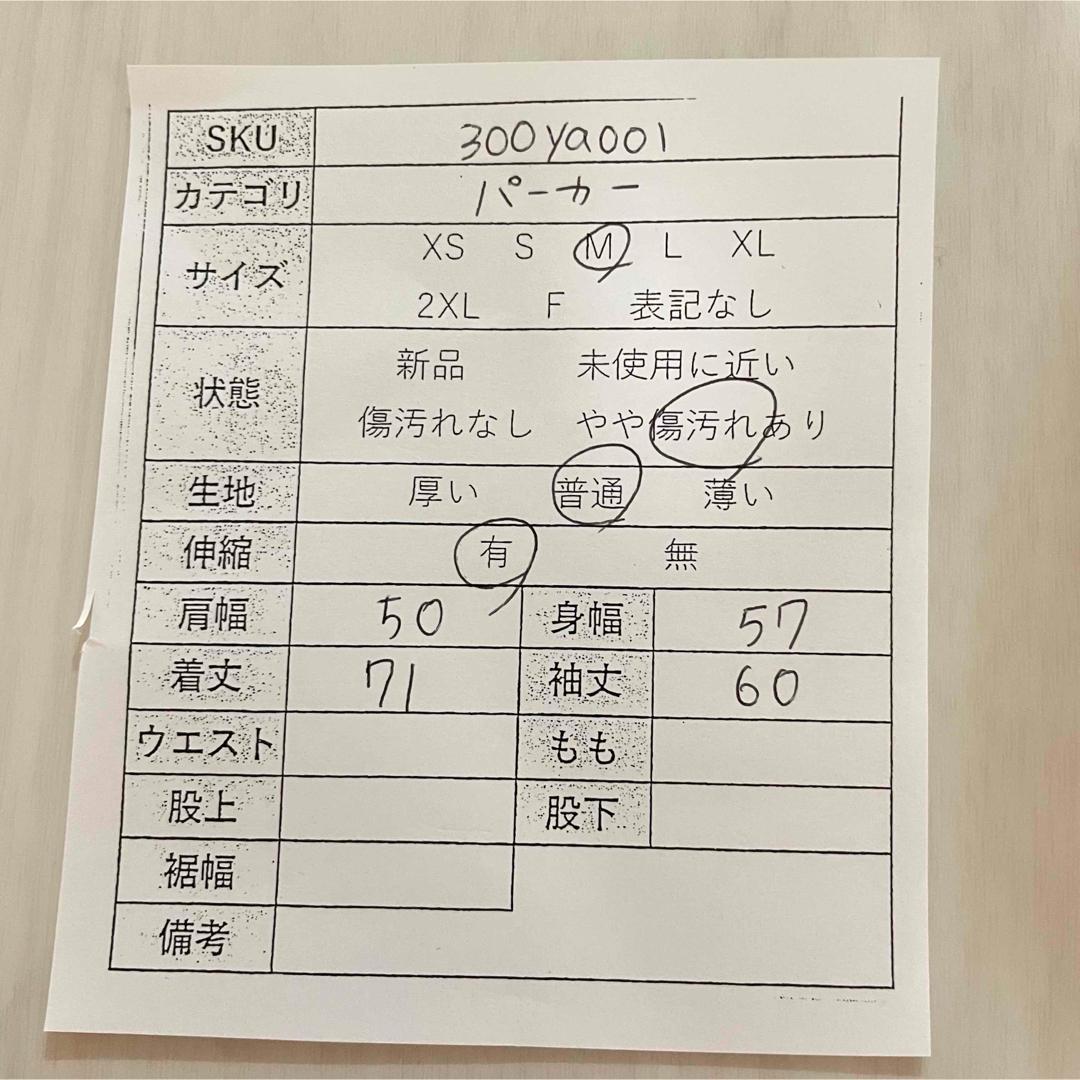 SKU 300ya001
カテゴリ パーカー
サイズ XS S M L XL
2XL F 表記なし
状態 新品 未使用に近い
傷汚れなし やや傷汚れあり
生地 厚い 普通 薄い
伸縮 有 無
肩幅 50 身幅 57
着丈 71 袖丈 60
ウエスト もも
股上 股下
裾幅
備考